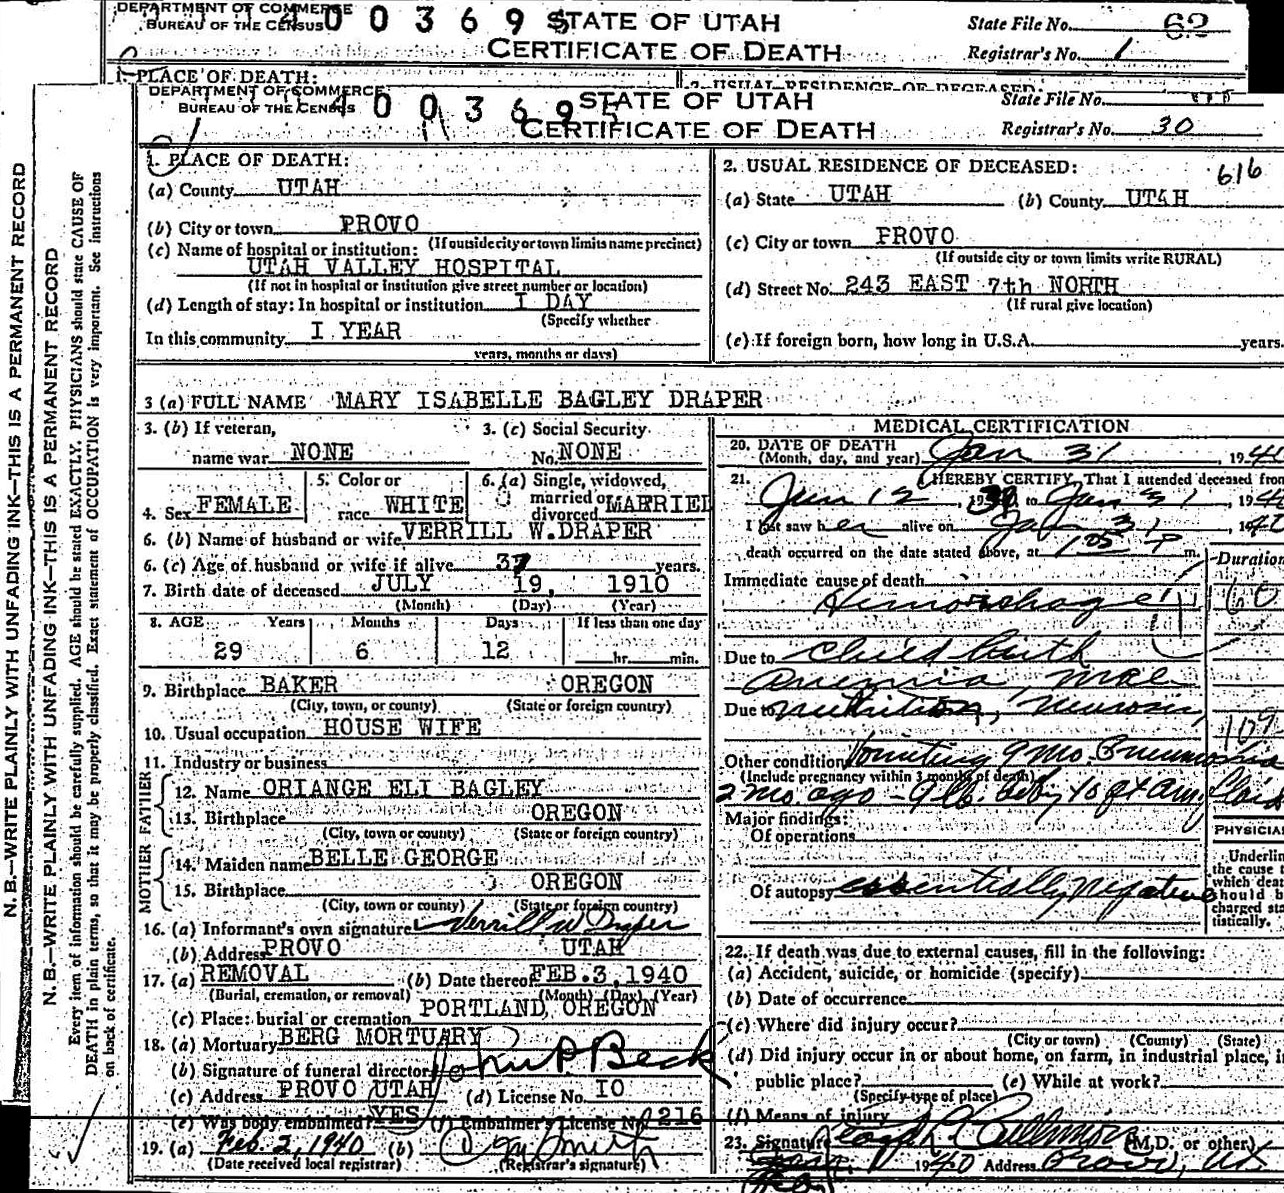 DEPARTMENT OF COMMERCE
BUREAU OF THE CENSUS
400369
STATE OF UTAH
CERTIFICATE OF DEATH
State File No. 62
Registrar's No. 1
1. PLACE OF DEATH:
2. USUAL RESIDENCE OF DECEASED:
DEPARTMENT OF COMMERCE
BUREAU OF THE CENSUS
400369
STATE OF UTAH
CERTIFICATE OF DEATH
State File No.
Registrar's No. 30
616
1. PLACE OF DEATH:
(a) County UTAH
(b) City or town PROVO
(If outside city or town limits name precinct)
(c) Name of hospital or institution:
UTAH VALLEY HOSPITAL
(If not in hospital or institution give street number or location)
(d) Length of stay: In hospital or institution I DAY
(Specify whether
In this community I YEAR
years, months or days)
2. USUAL RESIDENCE OF DECEASED:
(a) State UTAH (b) County UTAH
(c) City or town PROVO
(If outside city or town limits write RURAL)
(d) Street No. 243 EAST 7th NORTH
(If rural give location)
(e) If foreign born, how long in U.S.A. years.
3 (a) FULL NAME MARY ISABELLE BAGLEY DRAPER
3. (b) If veteran,
name war NONE
3. (c) Social Security
No. NONE
4. Sex FEMALE
5. Color or
race WHITE
6. (a) Single, widowed,
married or
divorced MARRIED
6. (b) Name of husband or wife VERRILL W.DRAPER
6. (c) Age of husband or wife if alive 37 years.
7. Birth date of deceased JULY 19, 1910
(Month) (Day) (Year)
8. AGE Years Months Days If less than one day
29 6 12 hr. min.
9. Birthplace BAKER OREGON
(City, town, or county) (State or foreign country)
10. Usual occupation HOUSE WIFE
11. Industry or business
FATHER
12. Name ORIANGE ELI BAGLEY
13. Birthplace OREGON
(City, town or county) (State or foreign country)
MOTHER
14. Maiden name BELLE GEORGE
15. Birthplace OREGON
(City, town or county) (State or foreign country)
16. (a) Informant's own signature Verrill W Draper
(b) Address PROVO UTAH
17. (a) REMOVAL (b) Date thereof FEB.3,1940
(Burial, cremation, or removal) (Month) (Day) (Year)
(c) Place: burial or cremation PORTLAND, OREGON
18. (a) Mortuary BERG MORTUARY
(b) Signature of funeral director John P. Beck
(c) Address PROVO UTAH (d) License No. IO
(e) Was body embalmed? YES (f) Embalmer's License No. 216
19. (a) Feb. 2, 1940 (b)
(Date received local registrar) (Registrar's signature)
MEDICAL CERTIFICATION
20. DATE OF DEATH
(Month, day, and year) Jan 31, 1940
21. I HEREBY CERTIFY, That I attended deceased from
Jun 12, 1939 to Jan 31 1940
I last saw her alive on Jan 31, 1940
death occurred on the date stated above, at 1 05 P m.
Duration
Immediate cause of death
Hemorrhage
60
Due to Child birth
Anemia, mal
Due to nutrition, neurosis,
109
Other condition Vomiting 9 mo. Pneumonia
(Include pregnancy within 3 months of death)
2 mo. ago - 9 lb. baby 10 pt
Major findings:
Of operations
PHYSICIAN
Underline
the cause to
which death
should be
charged sta-
tistically.
Of autopsy essentially negative
22. If death was due to external causes, fill in the following:
(a) Accident, suicide, or homicide (specify)
(b) Date of occurrence
(c) Where did injury occur?
(City or town) (County) (State)
(d) Did injury occur in or about home, on farm, in industrial place, in
public place? (e) While at work?
(Specify type of place)
(f) Means of injury
23. Signature (M.D. or other)
1940 Address Provo, Ut
N. B.—WRITE PLAINLY WITH UNFADING INK—THIS IS A PERMANENT RECORD
N. B.—WRITE PLAINLY WITH UNFADING INK—THIS IS A PERMANENT RECORD
Every item of information should be carefully supplied. AGE should be stated EXACTLY. PHYSICIANS should state CAUSE OF
DEATH in plain terms, so that it may be properly classified. Exact statement of OCCUPATION is very important. See instructions
on back of certificate.